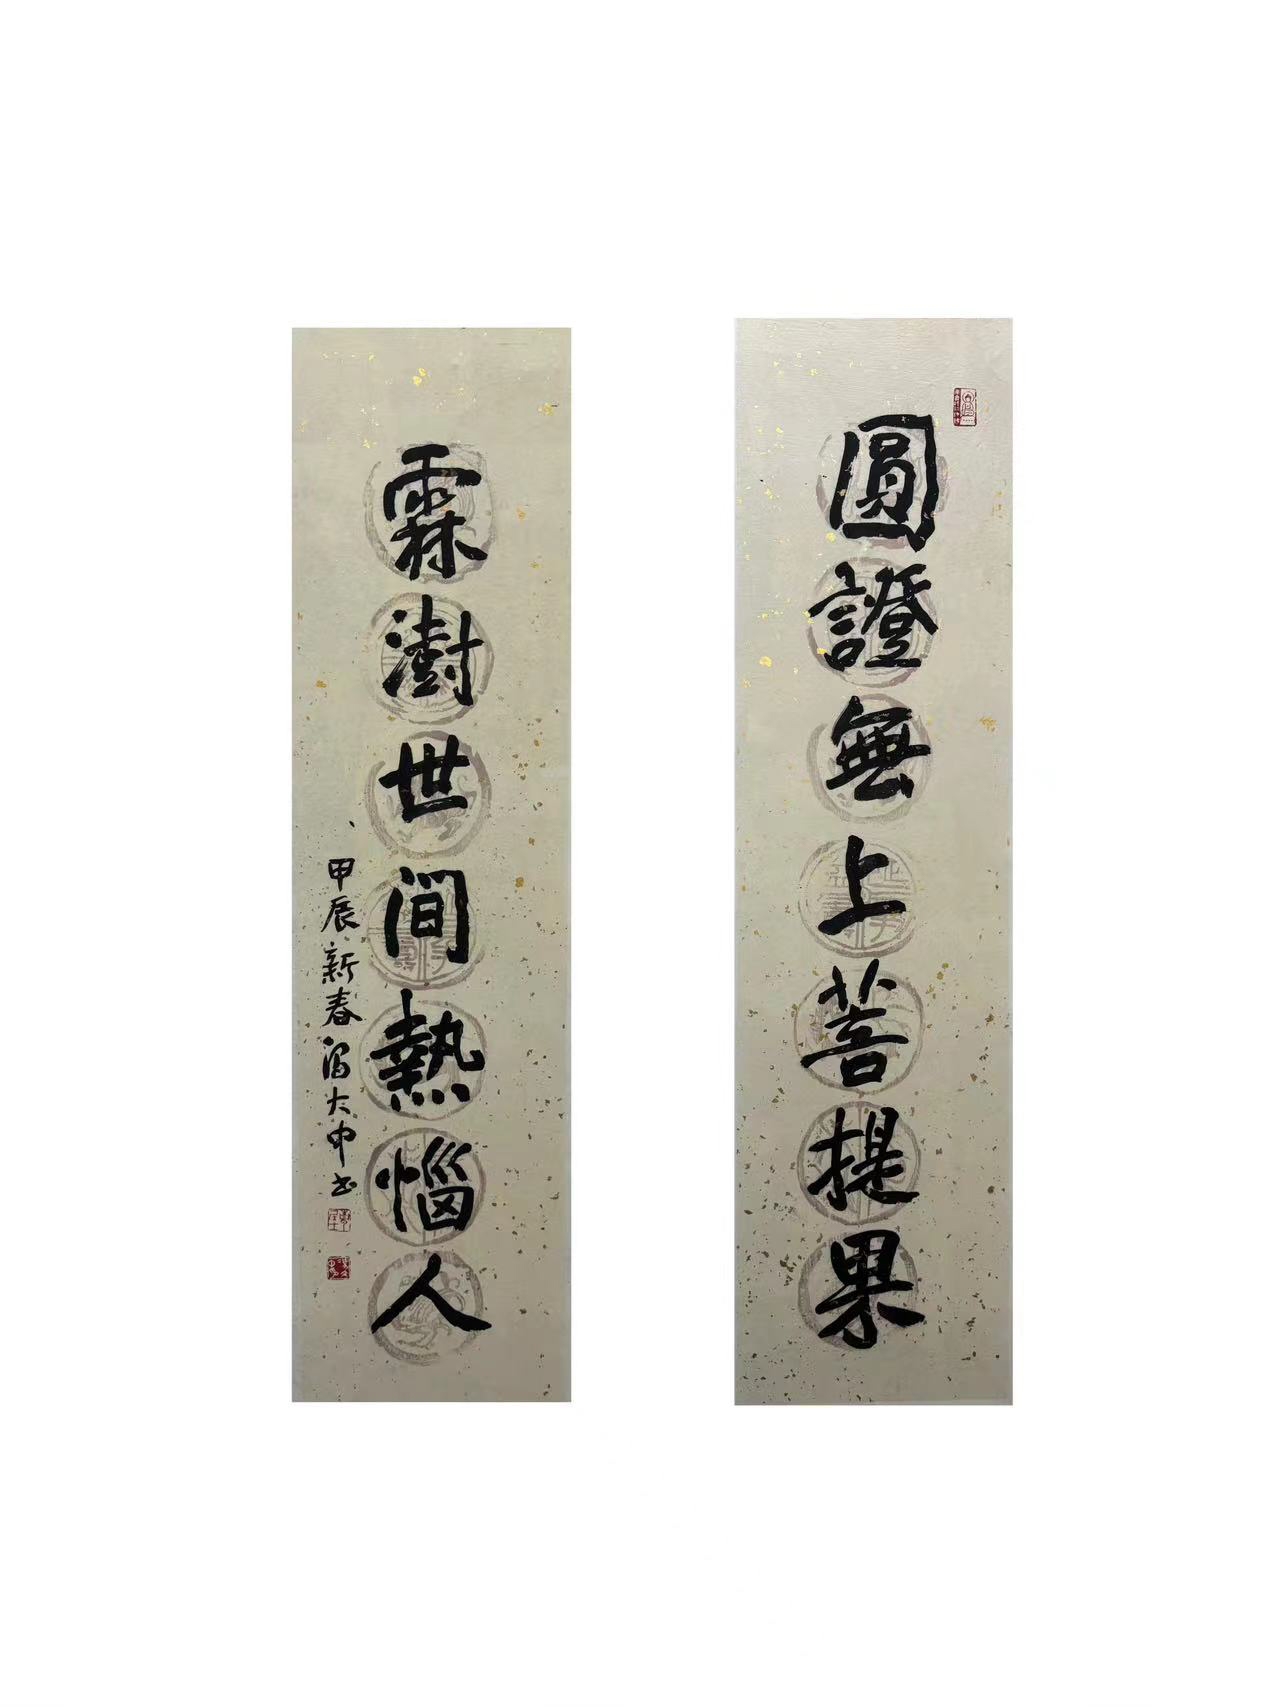 圓證無上菩提果
霖澍世间熱惱人
甲辰新春冯大中书